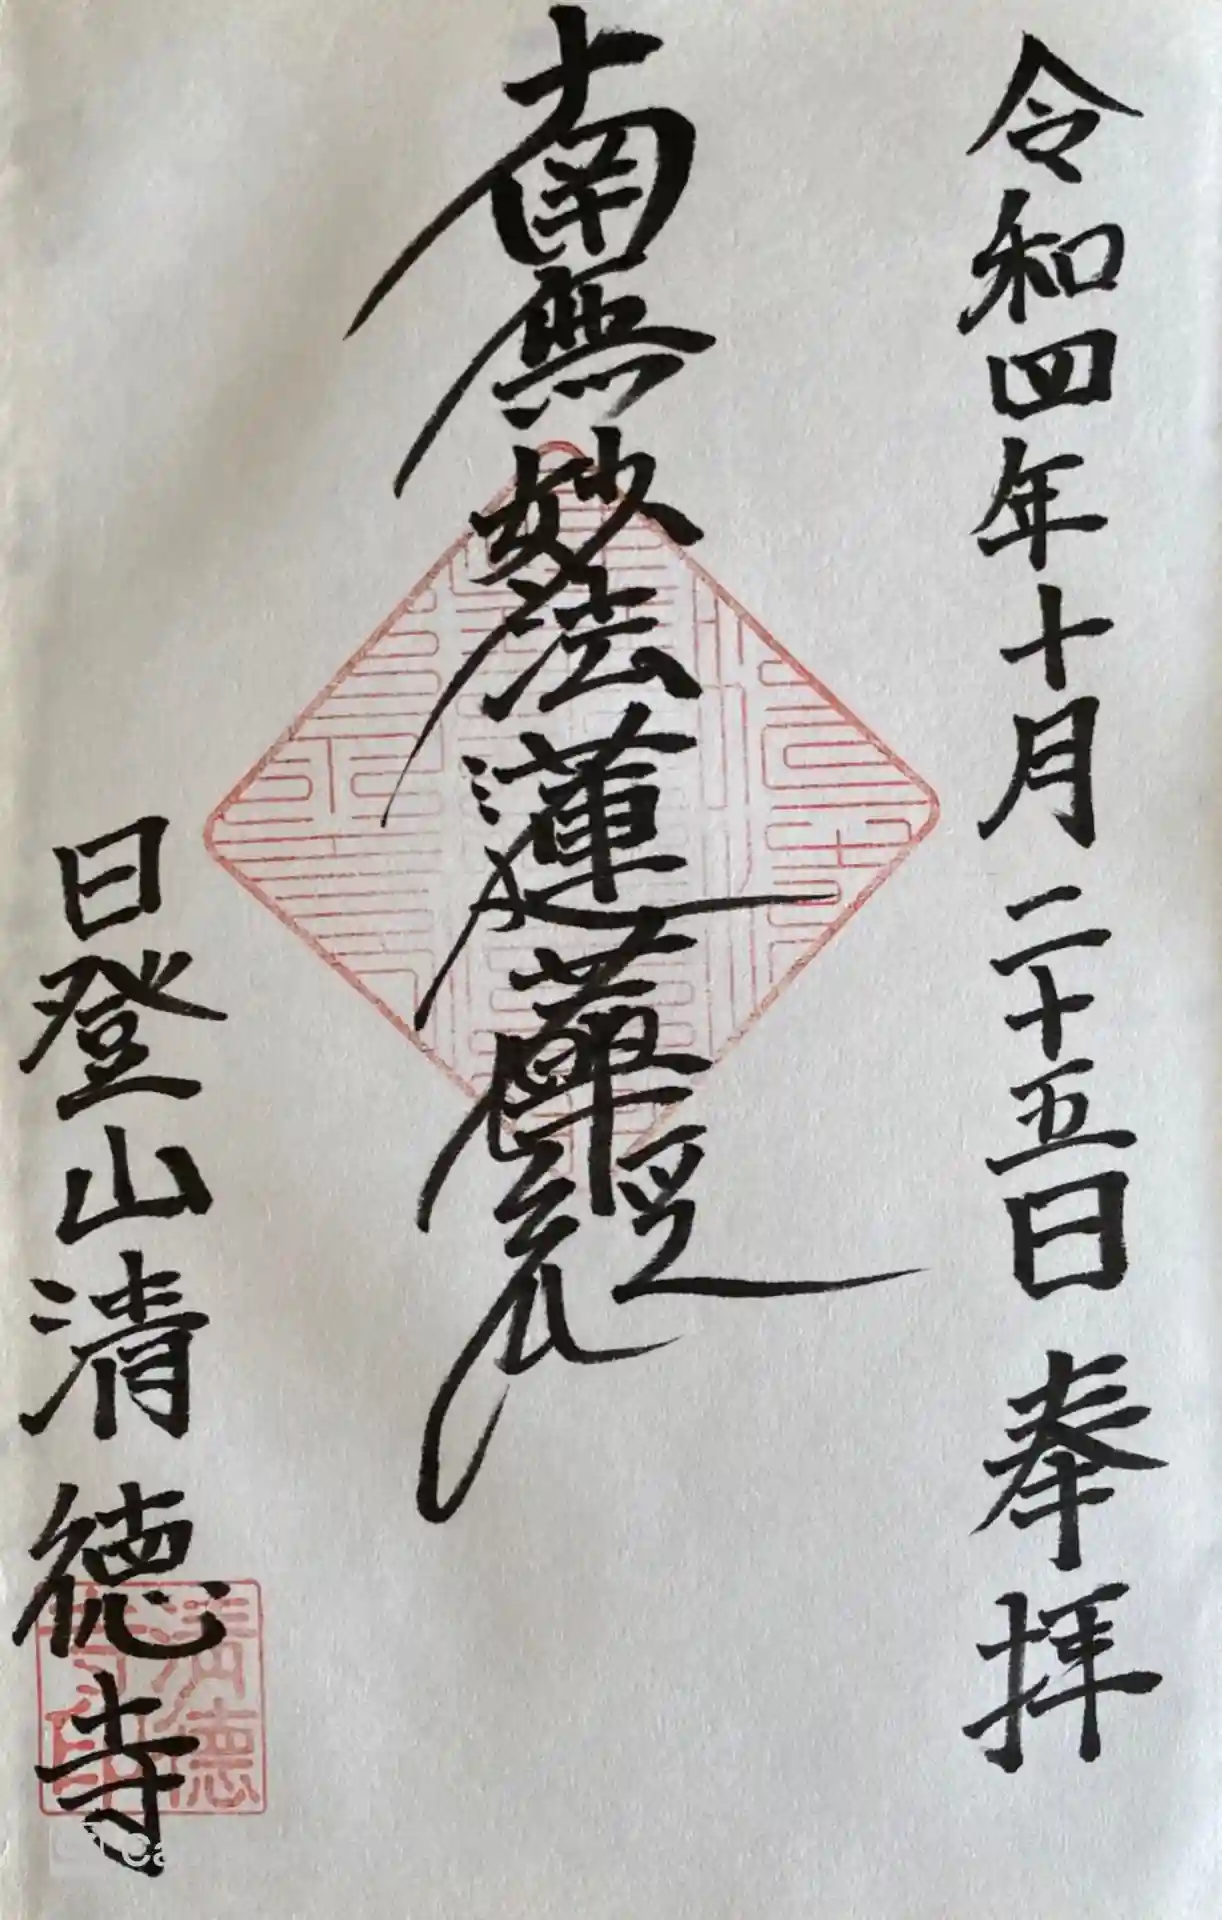 令和四年十月二十五日 奉拝
南無妙法蓮華經
日登山清徳寺
清徳
寺印